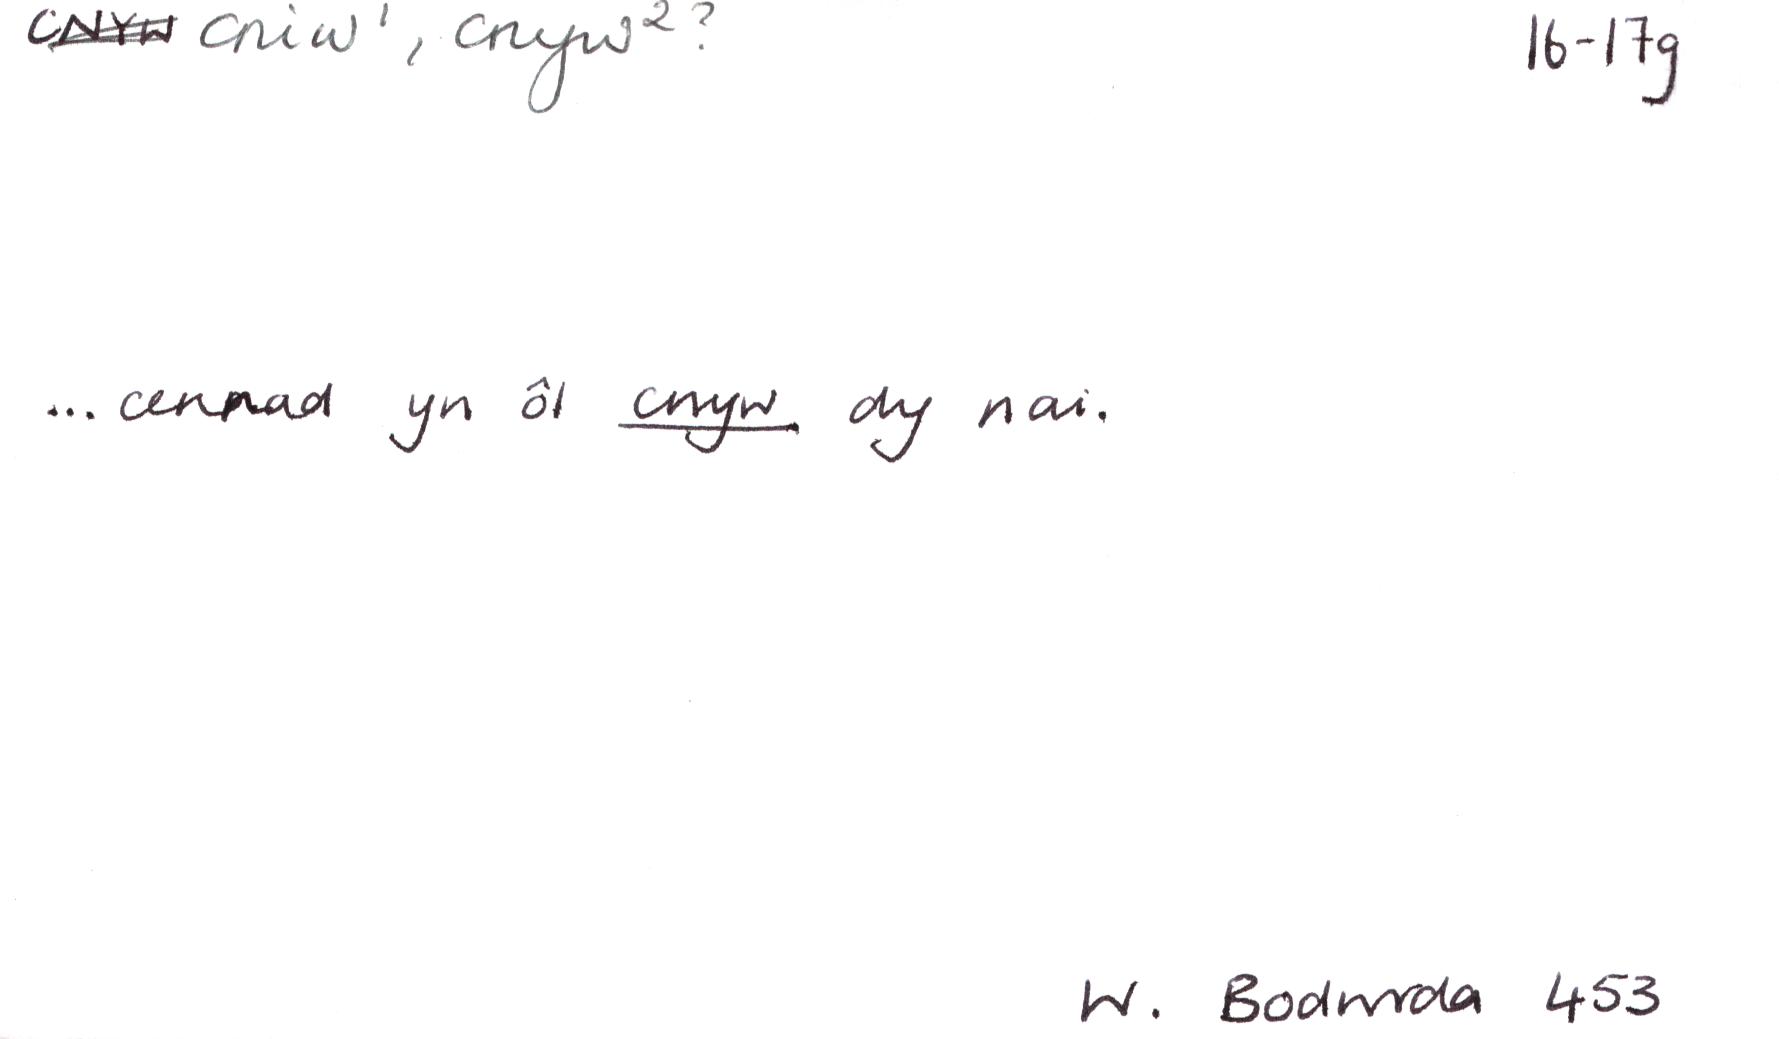 CNYW cniw¹, cnyw²? 16-17g
... cennad yn ôl cnyw dy nai.
W. Bodwrda 453